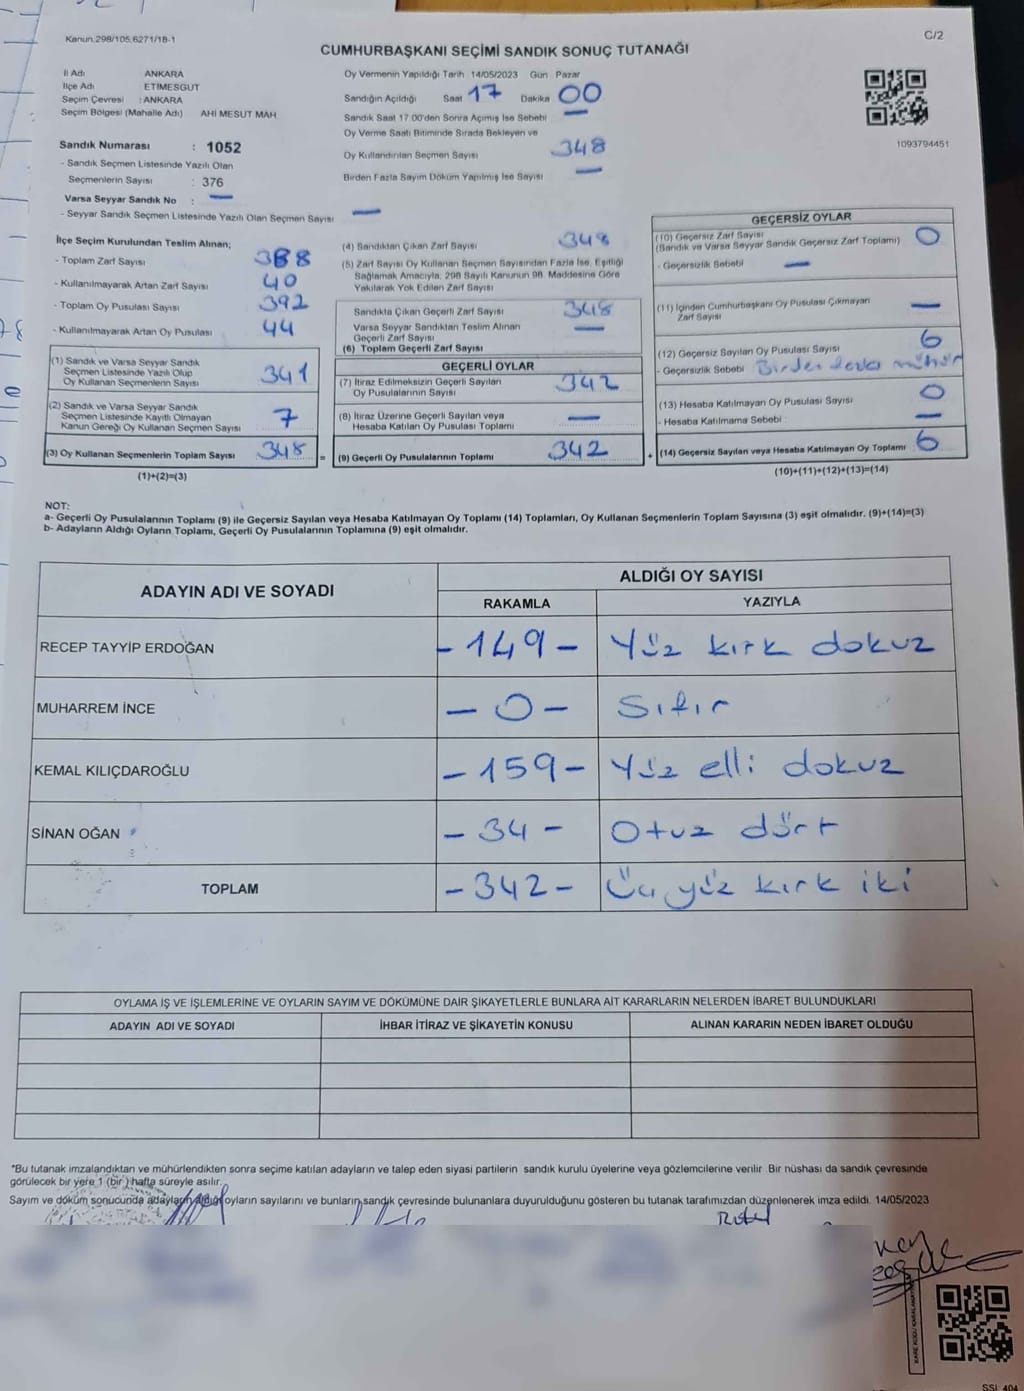 Kanun.298/105,6271/18-1
C/2
CUMHURBAŞKANI SEÇİMİ SANDIK SONUÇ TUTANAĞI
İl Adı ANKARA
İlçe Adı ETİMESGUT
Seçim Çevresi : ANKARA
Seçim Bölgesi (Mahalle Adı) AHİ MESUT MAH
Sandık Numarası : 1052
- Sandık Seçmen Listesinde Yazılı Olan
Seçmenlerin Sayısı : 376
Varsa Seyyar Sandık No : —
- Seyyar Sandık Seçmen Listesinde Yazılı Olan Seçmen Sayısı —
Oy Vermenin Yapıldığı Tarih 14/05/2023 Gün Pazar
Sandığın Açıldığı Saat 17 Dakika 00
Sandık Saat 17.00'den Sonra Açımış İse Sebebi —
Oy Verme Saati Bitiminde Sırada Bekleyen ve
Oy Kullandırılan Seçmen Sayısı 348
Birden Fazla Sayım Döküm Yapılmış İse Sayısı —
1093794451
İlçe Seçim Kurulundan Teslim Alınan;
- Toplam Zarf Sayısı 388
- Kullanılmayarak Artan Zarf Sayısı 40
- Toplam Oy Pusulası Sayısı 392
- Kullanılmayarak Artan Oy Pusulası 44
(1) Sandık ve Varsa Seyyar Sandık
Seçmen Listesinde Yazılı Olup
Oy Kullanan Seçmenlerin Sayısı 341
(2) Sandık ve Varsa Seyyar Sandık
Seçmen Listesinde Kayıtlı Olmayan
Kanun Gereği Oy Kullanan Seçmen Sayısı 7
(3) Oy Kullanan Seçmenlerin Toplam Sayısı 348 =
(1)+(2)=(3)
(4) Sandıktan Çıkan Zarf Sayısı 348
(5) Zarf Sayısı Oy Kullanan Seçmen Sayısından Fazla İse, Eşitliği
Sağlamak Amacıyla, 298 Sayılı Kanunun 98. Maddesine Göre
Yakılarak Yok Edilen Zarf Sayısı
Sandıkta Çıkan Geçerli Zarf Sayısı 348
Varsa Seyyar Sandıktan Teslim Alınan —
Geçerli Zarf Sayısı
(6) Toplam Geçerli Zarf Sayısı
GEÇERLİ OYLAR
(7) İtiraz Edilmeksizin Geçerli Sayılan 342
Oy Pusulalarının Sayısı
(8) İtiraz Üzerine Geçerli Sayılan veya —
Hesaba Katılan Oy Pusulası Toplamı
(9) Geçerli Oy Pusulalarının Toplamı 342 +
GEÇERSİZ OYLAR
(10) Geçersiz Zarf Sayısı 0
(Sandık ve Varsa Seyyar Sandık Geçersiz Zarf Toplamı)
- Geçersizlik Sebebi —
(11) İçinden Cumhurbaşkanı Oy Pusulası Çıkmayan —
Zarf Sayısı
(12) Geçersiz Sayılan Oy Pusulası Sayısı 6
- Geçersizlik Sebebi Birden fazla mühür
(13) Hesaba Katılmayan Oy Pusulası Sayısı 0
- Hesaba Katılmama Sebebi —
(14) Geçersiz Sayılan veya Hesaba Katılmayan Oy Toplamı 6
(10)+(11)+(12)+(13)=(14)
NOT:
a- Geçerli Oy Pusulalarının Toplamı (9) ile Geçersiz Sayılan veya Hesaba Katılmayan Oy Toplamı (14) Toplamları, Oy Kullanan Seçmenlerin Toplam Sayısına (3) eşit olmalıdır. (9)+(14)=(3)
b- Adayların Aldığı Oyların Toplamı, Geçerli Oy Pusulalarının Toplamına (9) eşit olmalıdır.
ADAYIN ADI VE SOYADI ALDIĞI OY SAYISI
RAKAMLA YAZIYLA
RECEP TAYYİP ERDOĞAN - 149 - Yüz kırk dokuz
MUHARREM İNCE - 0 - Sıfır
KEMAL KILIÇDAROĞLU - 159 - Yüz elli dokuz
SİNAN OĞAN - 34 - Otuz dört
TOPLAM - 342 - Üç yüz kırk iki
OYLAMA İŞ VE İŞLEMLERİNE VE OYLARIN SAYIM VE DÖKÜMÜNE DAİR ŞİKAYETLERLE BUNLARA AİT KARARLARIN NELERDEN İBARET BULUNDUKLARI
ADAYIN ADI VE SOYADI İHBAR İTİRAZ VE ŞİKAYETİN KONUSU ALINAN KARARIN NEDEN İBARET OLDUĞU
*Bu tutanak imzalandıktan ve mühürlendikten sonra seçime katılan adayların ve talep eden siyasi partilerin sandık kurulu üyelerine veya gözlemcilerine verilir. Bir nüshası da sandık çevresinde
görülecek bir yere 1 (bir) hafta süreyle asılır.
Sayım ve döküm sonucunda adayların aldığı oyların sayılarını ve bunların sandık çevresinde bulunanlara duyurulduğunu gösteren bu tutanak tarafımızdan düzenlenerek imza edildi. 14/05/2023